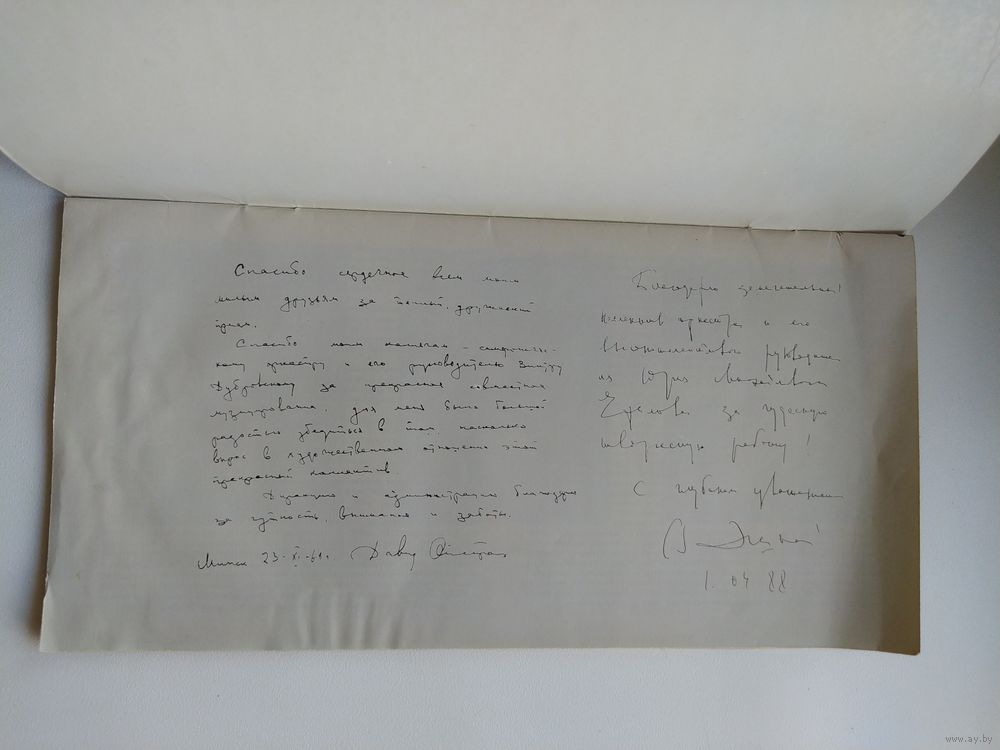 Спасибо сердечное всем моим
милым друзьям за теплый, дружеский
прием.
Спасибо моим коллегам – симфониче-
скому оркестру и его руководителю Виктору
Дубровскому за прекрасное совместное
музицирование. Для меня было большой
радостью убедиться в том, насколько
вырос в художественном отношении этот
прекрасный коллектив
Дирекцию и администрацию благодарю
за чуткость, внимание и заботы.
Минск 23. XI. 61г. Давид Ойстрах
Благодарю замечательный
коллектив оркестра и его
руководите
ля Юрия Михайловича
Ефимова за чудесную
творческую работу!
С глубоким уважением
В
1. 04 88
www.ay.by